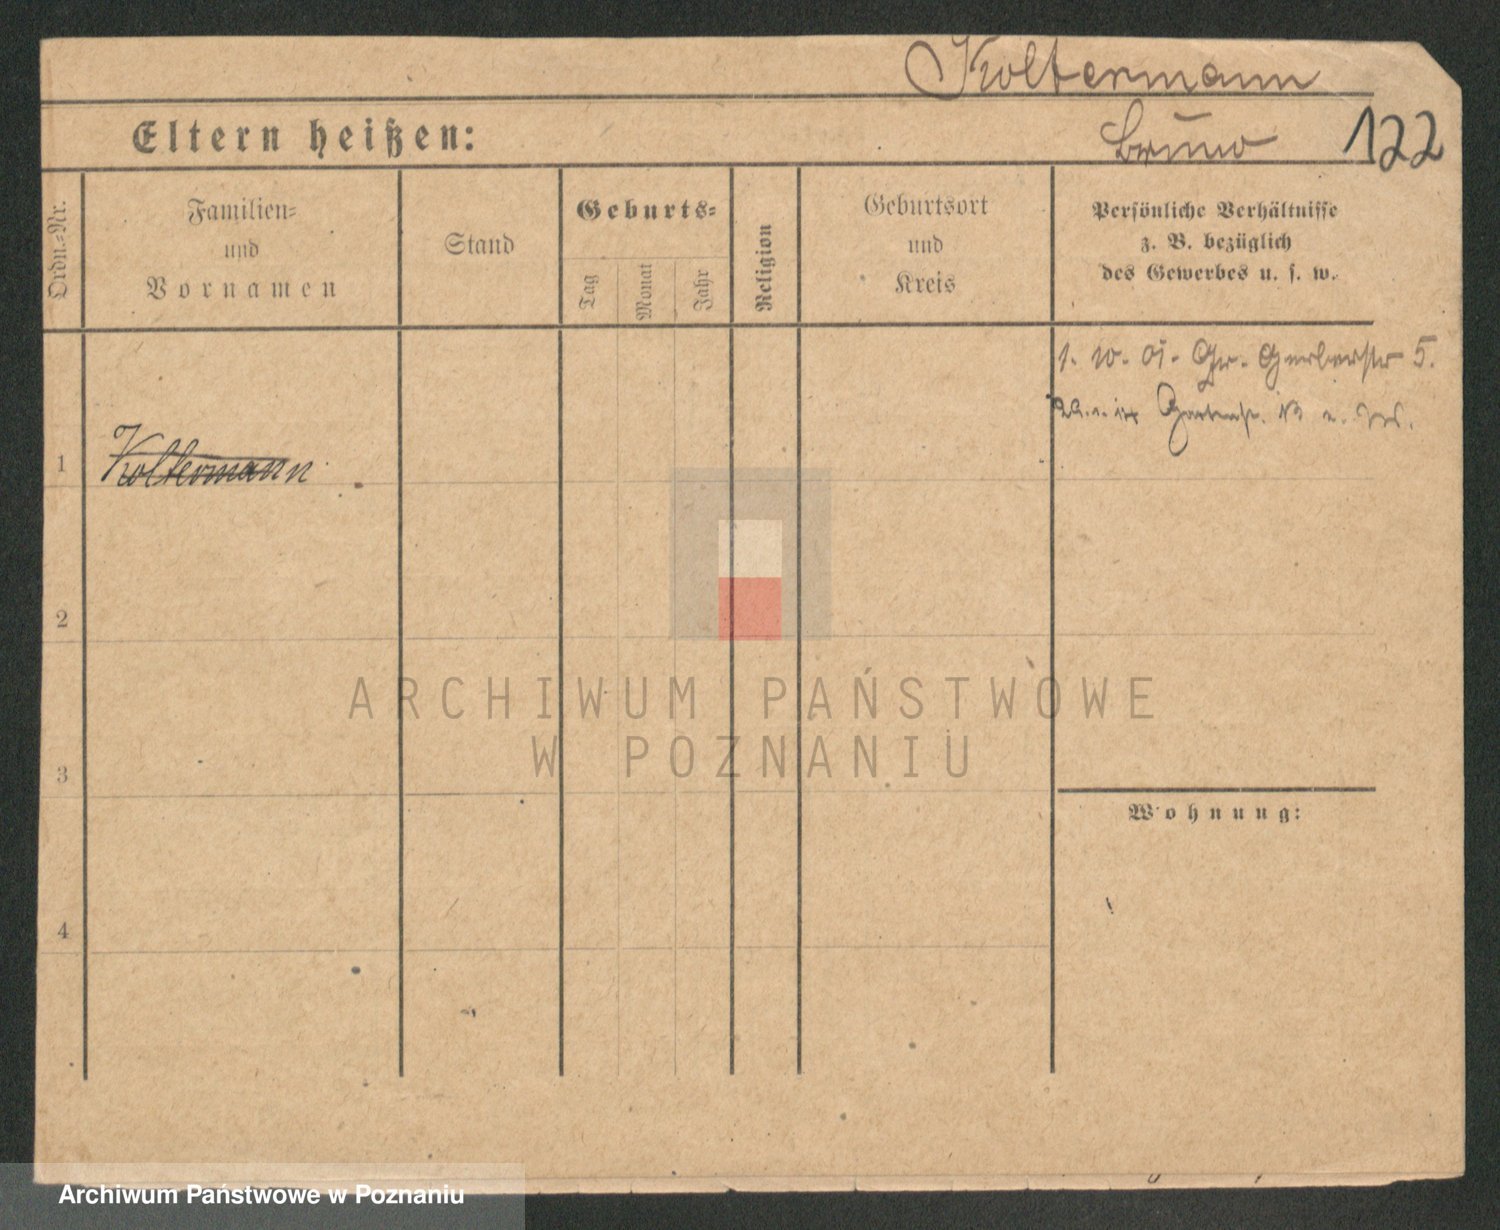 Koltermann
Eltern heißen:
Bruno
122
Ordn.-Nr.
Familien-
und
Vornamen
Stand
Geburts-
Tag
Monat
Jahr
Religion
Geburtsort
und
Kreis
Persönliche Verhältnisse
z. B. bezüglich
des Gewerbes u. s. w.
1. 10. 01. Gr. Gerberstr 5.
Gartenstr. 13
1 Koltermann
2
3
4
Wohnung:
ARCHIWUM PAŃSTWOWE
W POZNANIU
Archiwum Państwowe w Poznaniu